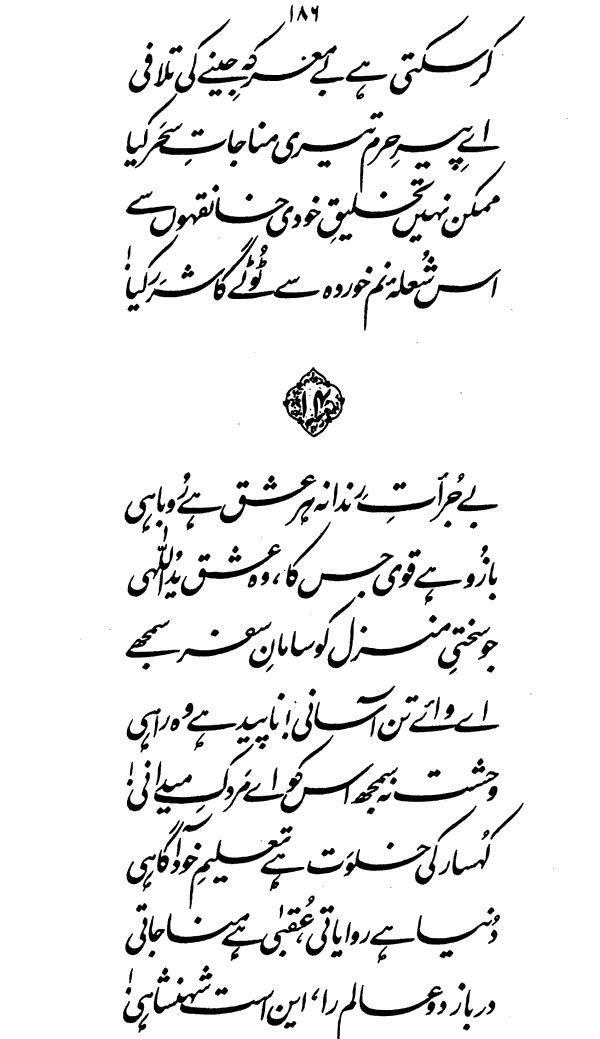 ۱۸۶
کر سکتی ہے بے معرکہ جینے کی تلافی
اے پیرِ حرم تیری مناجاتِ سحر کیا
ممکن نہیں تخلیقِ خودی خانقہوں سے
اس شُعلۂ نم خوردہ سے ٹُوٹے گا شرر کیا!
۱۴
بے جُرأتِ رِندانہ ہر عشق ہے رُوباہی
بازُو ہے قوی جس کا، وہ عشق یدُاللّٰہی
جو سختیِ منزل کو سامانِ سفر سمجھے
اے وائے تن آسانی! ناپید ہے وہ راہی
وحشت نہ سمجھ اس کو اے مَردکِ میدانی!
کُہسار کی خلوَت ہے تعلیمِ خود آگاہی
دُنیا ہے روایاتی، عُقبٰی ہے مناجاتی
در باز دو عالم را، این است شہنشاہی!